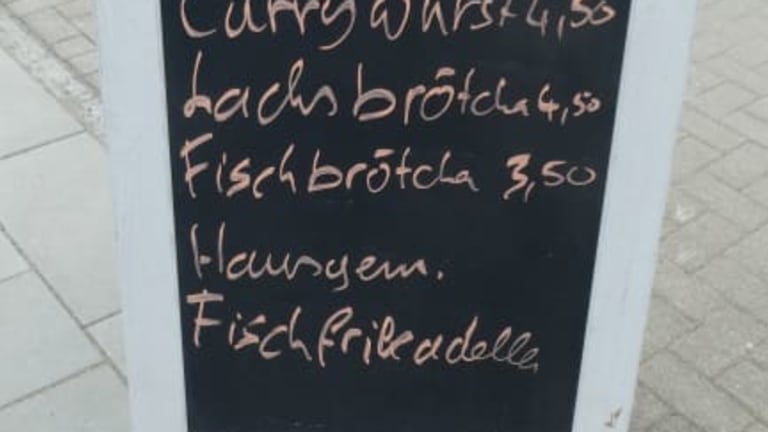 Currywurst 4,50
Lachsbrötchen 4,50
Fischbrötchen 3,50
Hausgem.
Fischfrikadelle